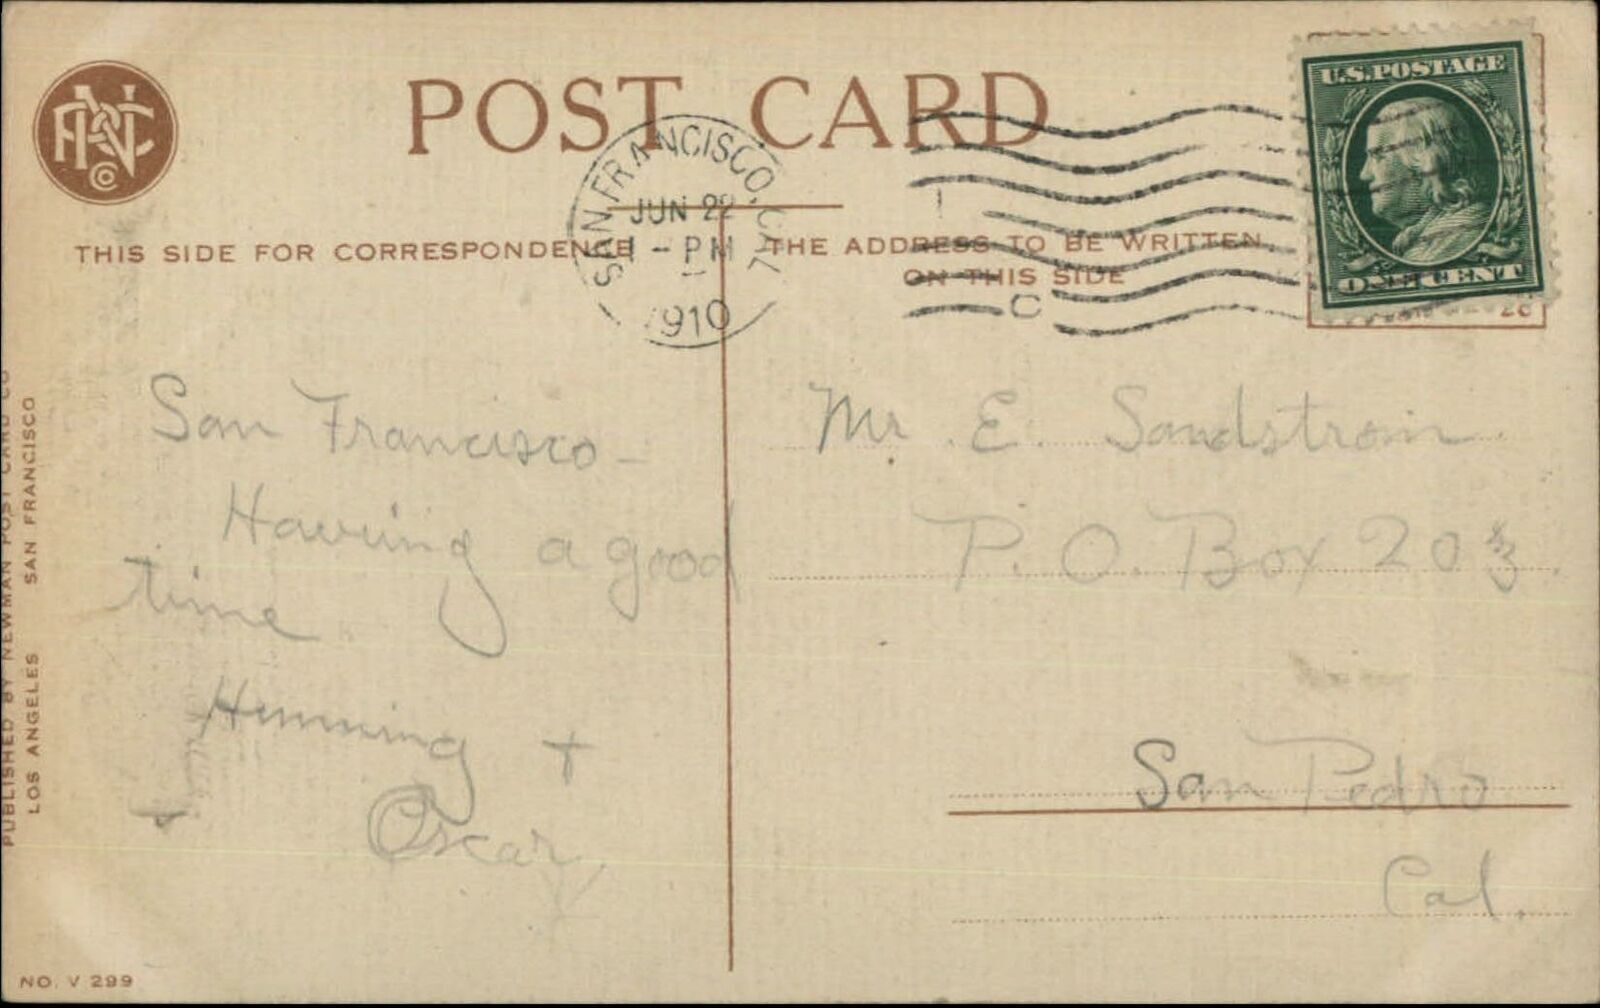 POST CARD
U.S. POSTAGE
ONE CENT
SAN FRANCISCO, CAL
JUN 22
1 - PM
1910
C
THIS SIDE FOR CORRESPONDENCE
THE ADDRESS TO BE WRITTEN
ON THIS SIDE
San Francisco -
Having a good
time
Hemming +
Oscar
Mr. E. Sandstrom
P. O. Box 203.
San Pedro
Cal.
PUBLISHED BY NEWMAN POST CARD CO
LOS ANGELES SAN FRANCISCO
NO. V 299